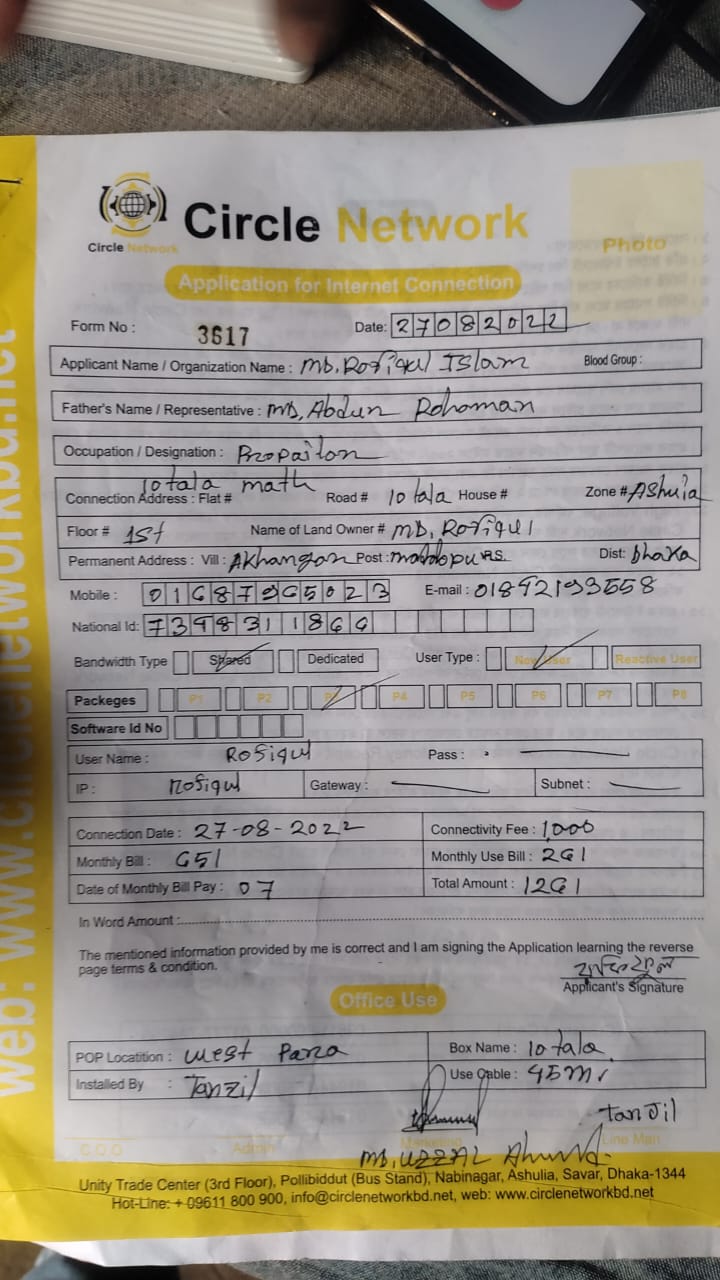 Circle Network
Circle Network
Photo
Application for Internet Connection
Form No : 3617 Date: 27082022
Applicant Name / Organization Name : MD. Rofiqul Islam Blood Group :
Father's Name / Representative : MD, Abdur Rohoman
Occupation / Designation :
10 tala math
Connection Address : Flat # Road # 10 tala House # Zone # AShulia
Floor # 1St Name of Land Owner # MD. Rofiqul
Permanent Address : Vill : Post : P.S. Dist: Dhaka
Mobile : E-mail : 01892193558
National Id:
Bandwidth Type Shared Dedicated User Type : New User Reactive User
Packeges P1 P2 P3 P4 P5 P6 P7 P8
Software Id No
User Name : Rofiqul Pass :
IP : Rofiqul Gateway : Subnet :
Connection Date : 27-08-2022 Connectivity Fee : 1,000
Monthly Bill : 651 Monthly Use Bill : 261
Date of Monthly Bill Pay : 07 Total Amount : 1261
In Word Amount :
The mentioned information provided by me is correct and I am signing the Application learning the reverse
page terms & condition.
Applicant's Signature
Office Use
POP Locatition : West Para Box Name : 10 tala
Installed By : Tanzil Use Cable : 45m
tanJil
C.O.O Admin Marketing Line Man
MD, UZZAL Ahmed
Unity Trade Center (3rd Floor), Pollibiddut (Bus Stand), Nabinagar, Ashulia, Savar, Dhaka-1344
Hot-Line: + 09611 800 900, info@circlenetworkbd.net, web: www.circlenetworkbd.net
web: www.circlenetworkbd.net